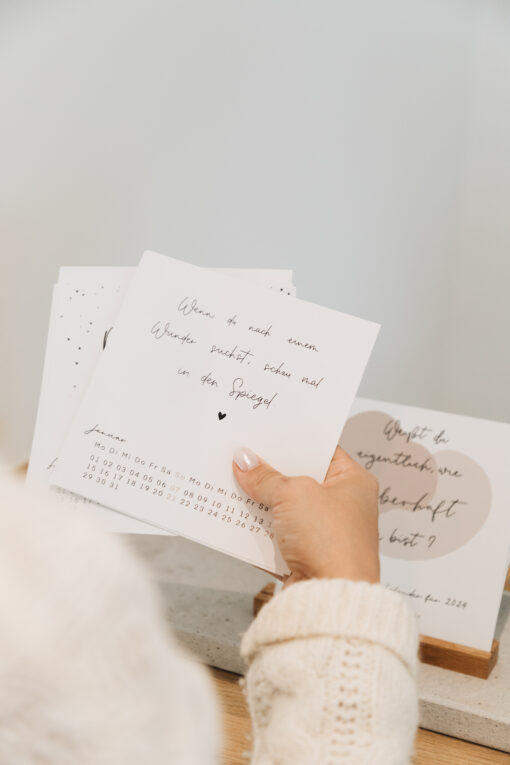 Wenn du nach einem
Wunder suchst, schau mal
in den Spiegel
Januar
Mo Di Mi Do Fr Sa So Mo Di Mi Do Fr Sa
01 02 03 04 05 06 07 08 09 10 11 12 13
15 16 17 18 19 20 21 22 23 24 25 26 27 28
29 30 31
Weißt du
eigentlich, wie
berhaft
bist ?
Kalender für 2024